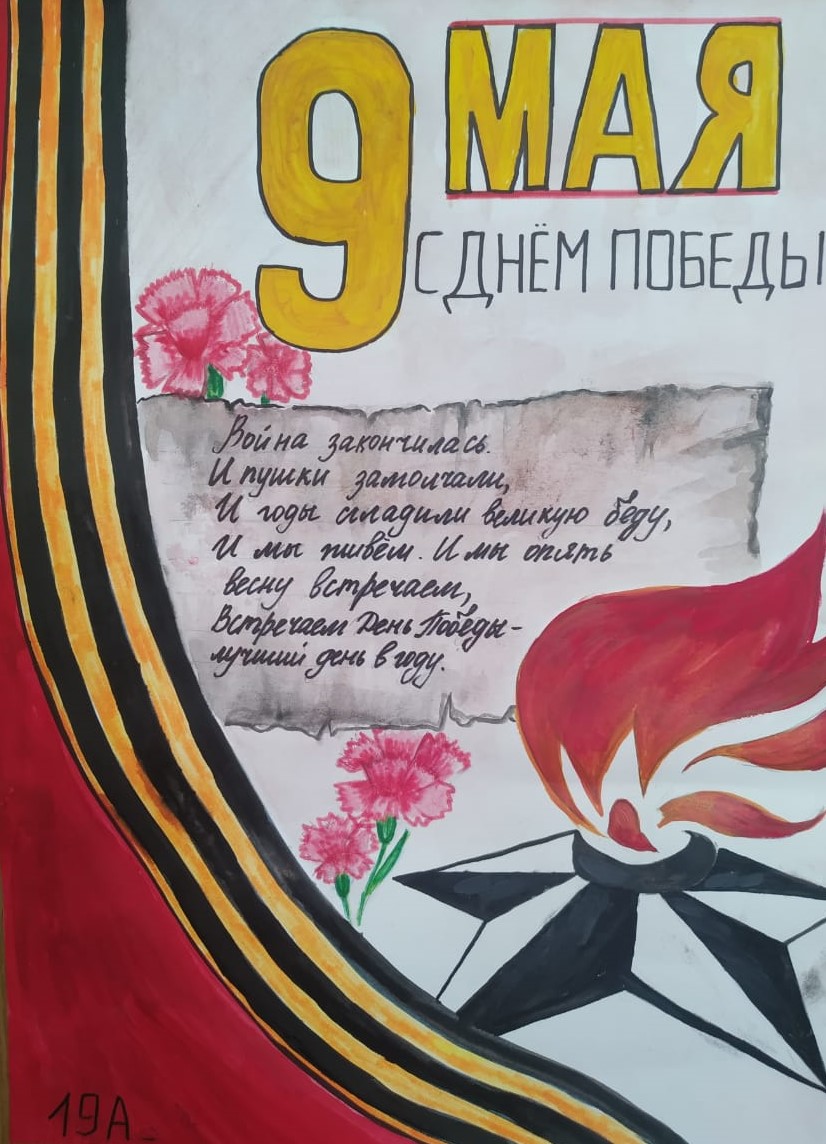 9 МАЯ
С ДНЁМ ПОБЕДЫ
Война закончилась.
И пушки замолчали,
И годы сгладили великую беду,
И мы живём. И мы опять
весну встречаем,
Встречаем День Победы-
лучший день в году.
19А